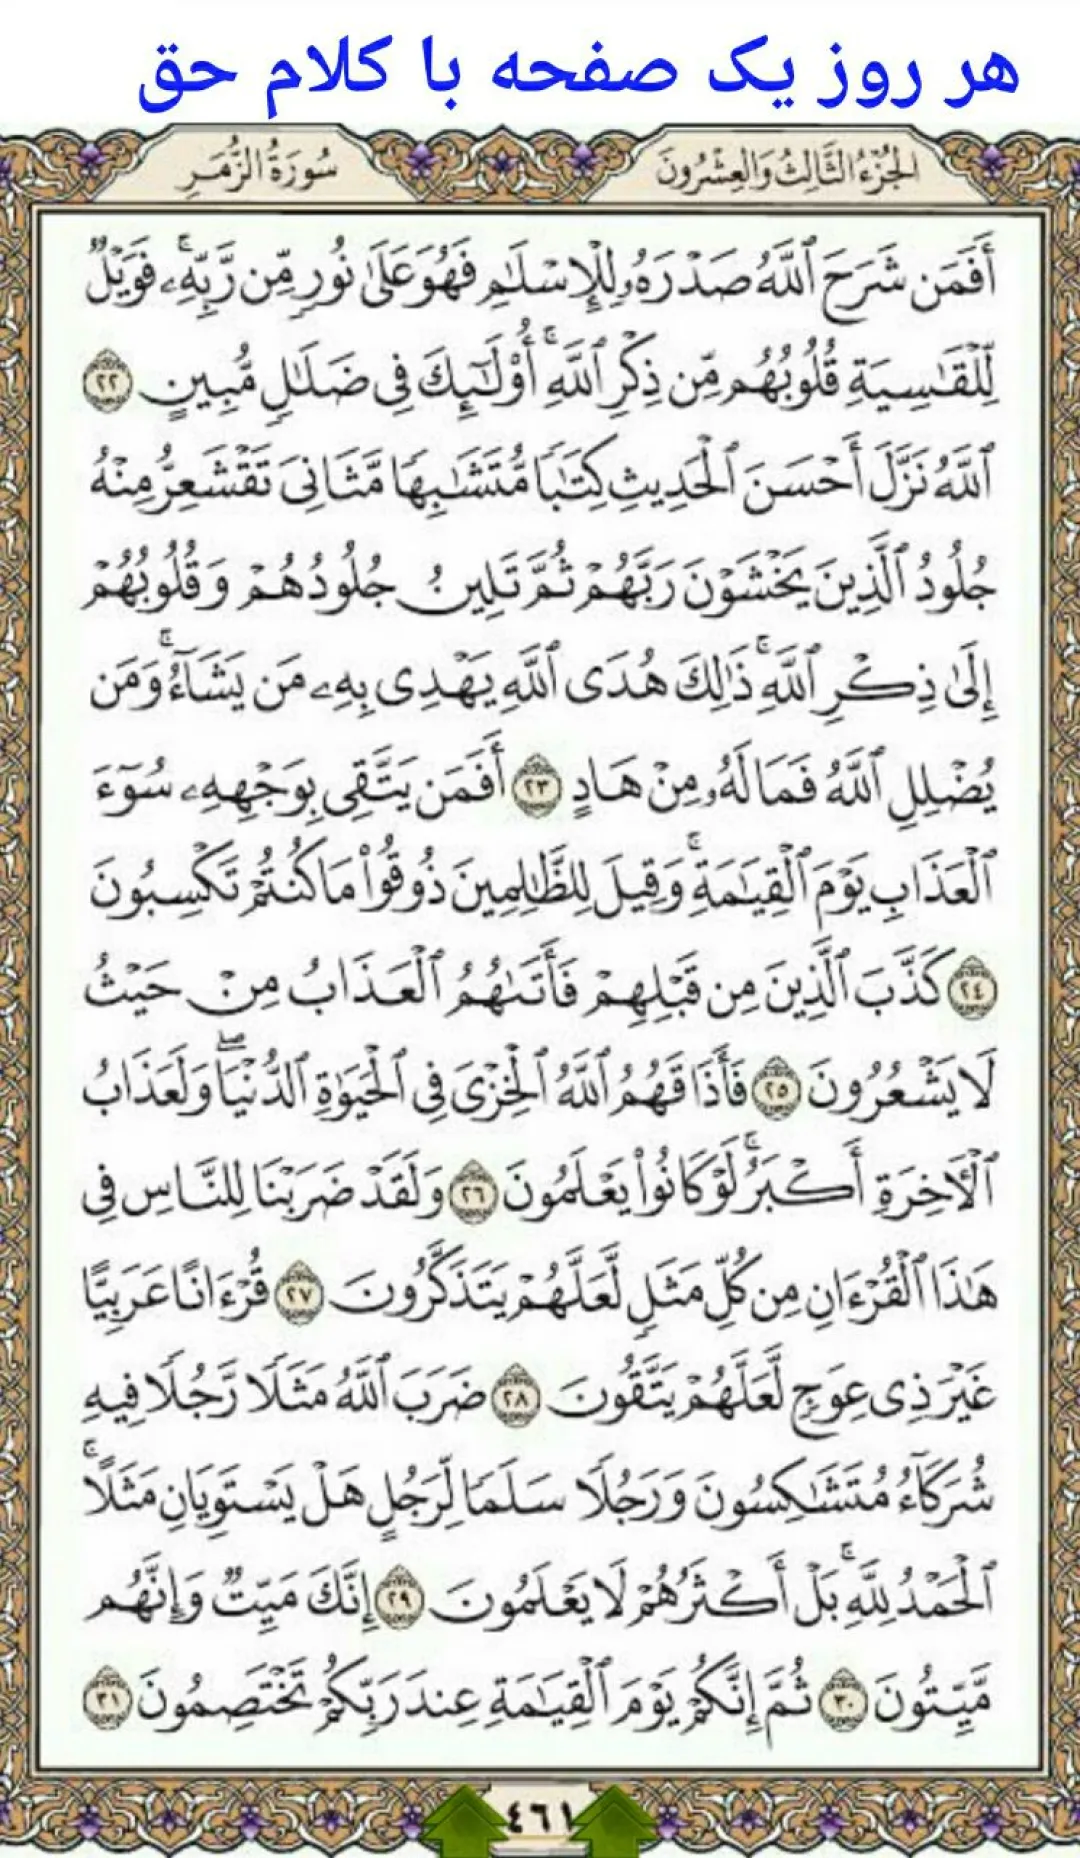 هر روز یک صفحه با کلام حق
الجُزْءُ الثَّالِثُ وَالعِشْرُونَ
سُورَةُ الزُّمَرِ
أَفَمَن شَرَحَ ٱللَّهُ صَدْرَهُۥ لِلْإِسْلَٰمِ فَهُوَ عَلَىٰ نُورٍ مِّن رَّبِّهِۦ ۚ فَوَيْلٌ
لِّلْقَٰسِيَةِ قُلُوبُهُم مِّن ذِكْرِ ٱللَّهِ ۚ أُو۟لَٰٓئِكَ فِى ضَلَٰلٍ مُّبِينٍ ٢٢
ٱللَّهُ نَزَّلَ أَحْسَنَ ٱلْحَدِيثِ كِتَٰبًا مُّتَشَٰبِهًا مَّثَانِىَ تَقْشَعِرُّ مِنْهُ
جُلُودُ ٱلَّذِينَ يَخْشَوْنَ رَبَّهُمْ ثُمَّ تَلِينُ جُلُودُهُمْ وَقُلُوبُهُمْ
إِلَىٰ ذِكْرِ ٱللَّهِ ۚ ذَٰلِكَ هُدَى ٱللَّهِ يَهْدِى بِهِۦ مَن يَشَآءُ ۚ وَمَن
يُضْلِلِ ٱللَّهُ فَمَا لَهُۥ مِنْ هَادٍ ٢٣ أَفَمَن يَتَّقِى بِوَجْهِهِۦ سُوٓءَ
ٱلْعَذَابِ يَوْمَ ٱلْقِيَٰمَةِ ۚ وَقِيلَ لِلظَّٰلِمِينَ ذُوقُوا۟ مَا كُنتُمْ تَكْسِبُونَ
٢٤ كَذَّبَ ٱلَّذِينَ مِن قَبْلِهِمْ فَأَتَىٰهُمُ ٱلْعَذَابُ مِنْ حَيْثُ
لَا يَشْعُرُونَ ٢٥ فَأَذَاقَهُمُ ٱللَّهُ ٱلْخِزْىَ فِى ٱلْحَيَوٰةِ ٱلدُّنْيَا ۖ وَلَعَذَابُ
ٱلْـَٔاخِرَةِ أَكْبَرُ ۚ لَوْ كَانُوا۟ يَعْلَمُونَ ٢٦ وَلَقَدْ ضَرَبْنَا لِلنَّاسِ فِى
هَٰذَا ٱلْقُرْءَانِ مِن كُلِّ مَثَلٍ لَّعَلَّهُمْ يَتَذَكَّرُونَ ٢٧ قُرْءَانًا عَرَبِيًّا
غَيْرَ ذِى عِوَجٍ لَّعَلَّهُمْ يَتَّقُونَ ٢٨ ضَرَبَ ٱللَّهُ مَثَلًا رَّجُلًا فِيهِ
شُرَكَآءُ مُتَشَٰكِسُونَ وَرَجُلًا سَلَمًا لِّرَجُلٍ هَلْ يَسْتَوِيَانِ مَثَلًا ۚ
ٱلْحَمْدُ لِلَّهِ ۚ بَلْ أَكْثَرُهُمْ لَا يَعْلَمُونَ ٢٩ إِنَّكَ مَيِّتٌ وَإِنَّهُم
مَّيِّتُونَ ٣٠ ثُمَّ إِنَّكُمْ يَوْمَ ٱلْقِيَٰمَةِ عِندَ رَبِّكُمْ تَخْتَصِمُونَ ٣١
٤٦١